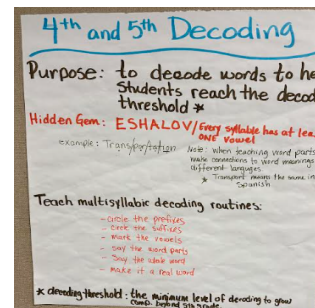 4th and 5th Decoding
Purpose: to decode words to he
students reach the decod
threshold *
Hidden Gem: ESHALOV/Every syllable has at lea
ONE vowel
example: Trans/por/tation
Note: when teaching word parts
make connections to word meanings
different languages
* Transport means the same in
Spanish
Teach multisyllabic decoding routines:
- Circle the prefixes
- Circle the suffixes
- Mark the vowels
- Say the word parts
- Say the whole word
- Make it a real word
* decoding threshold: the minimum level of decoding to grow
comp. beyond 5th grade